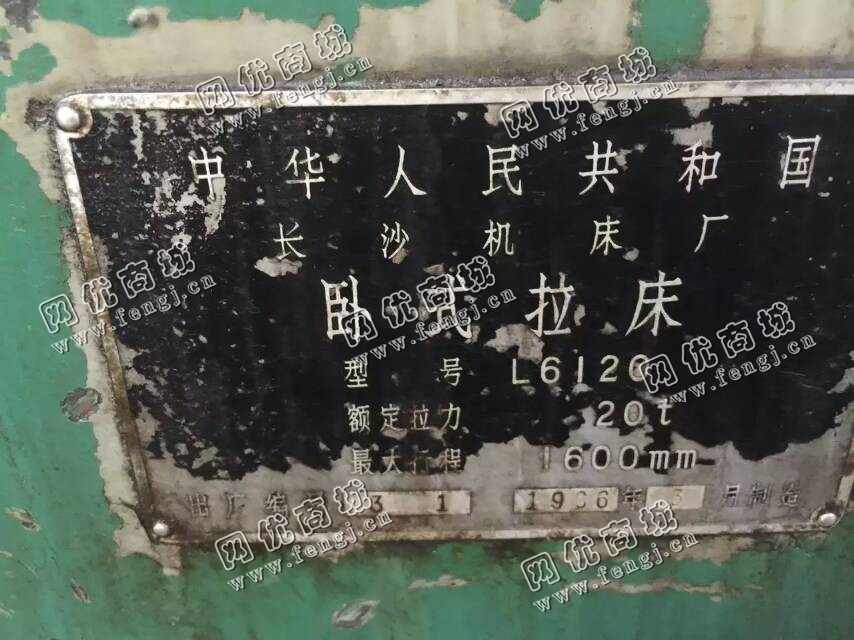 中华人民共和国
长沙机床厂
卧式拉床
型号 L6120
额定拉力 20t
最大行程 1600mm
出厂编 31 19 6年 3月制造
网优商城
www.fengj.cn
网优商城
www.fengj.cn
网优商城
www.fengj.cn
网优商城
www.fengj.cn
网优商城
www.fengj.cn
网优商城
www.fengj.cn
网优商城
www.fengj.cn
网优商城
www.fengj.cn